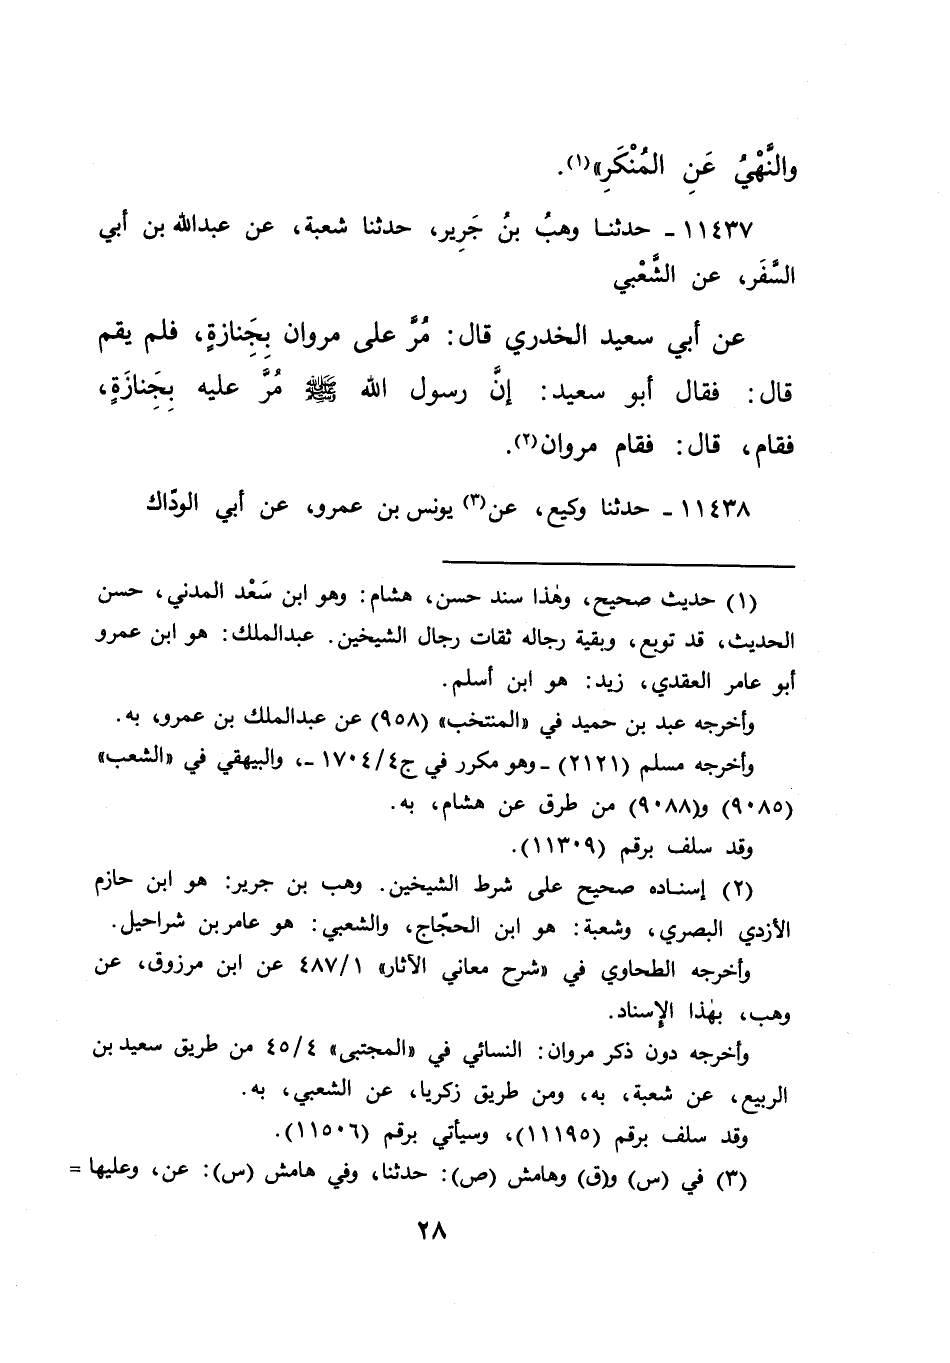 والنَّهْيُ عَنِ المُنْكَرِ»(١).
١١٤٣٧ - حدثنا وهبُ بنُ جَرِير، حدثنا شعبة، عن عبدالله بن أبي
السَّفَر، عن الشَّعْبي
عن أبي سعيد الخدري قال: مُرَّ على مروان بِجَنِازةٍ، فلم يقم
قال: فقال أبو سعيد: إنَّ رسول الله ﷺ مُرَّ عليه بِجَنِازَةٍ،
فقام، قال: فقام مروان(٢).
١١٤٣٨ - حدثنا وكيع، عن(٣) يونس بن عمرو، عن أبي الودّاك
(١) حديث صحيح، وهٰذا سند حسن، هشام: وهو ابن سَعْد المدني، حسن
الحديث، قد توبع، وبقية رجاله ثقات رجال الشيخين. عبدالملك: هو ابن عمرو
أبو عامر العقدي، زيد: هو ابن أسلم.
وأخرجه عبد بن حميد في «المنتخب» (٩٥٨) عن عبدالملك بن عمرو، به.
وأخرجه مسلم (٢١٢١) - وهو مكرر في ج٤/١٧٠٤ -، والبيهقي في «الشعب»
(٩٠٨٥) و(٩٠٨٨) من طرق عن هشام، به.
وقد سلف برقم (١١٣٠٩).
(٢) إسناده صحيح على شرط الشيخين. وهب بن جرير: هو ابن حازم
الأزدي البصري، وشعبة: هو ابن الحجّاج، والشعبي: هو عامر بن شراحيل.
وأخرجه الطحاوي في «شرح معاني الآثار» ٤٨٧/١ عن ابن مرزوق، عن
وهب، بهٰذا الإسناد.
وأخرجه دون ذكر مروان: النسائي في «المجتبى» ٤٥/٤ من طريق سعيد بن
الربيع، عن شعبة، به، ومن طريق زكريا، عن الشعبي، به.
وقد سلف برقم (١١١٩٥)، وسيأتي برقم (١١٥٠٦).
(٣) في (س) و(ق) وهامش (ص): حدثنا، وفي هامش (س): عن، وعليها =
٢٨